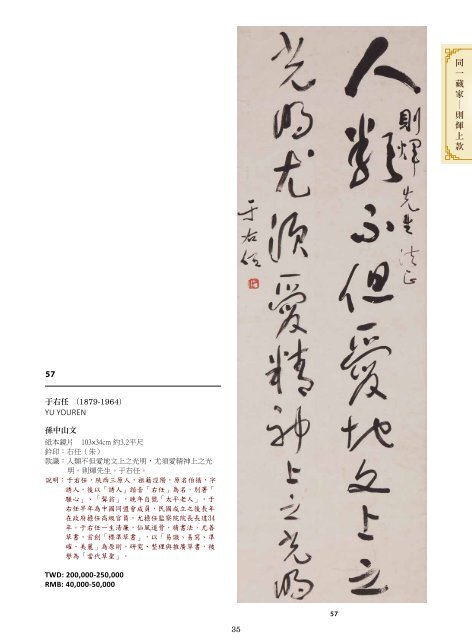 同一藏家—則煇上款
人類不但愛地文上之
光明尤須愛精神上之光明
則煇先生法正
于右任
57
于右任 (1879-1964)
YU YOUREN
孫中山文
紙本鏡片 103×34cm 約3.2平尺
鈐印：右任（朱）
款識：人類不但愛地文上之光明，尤須愛精神上之光
明。則煇先生，于右任。
說明：于右任，陝西三原人，祖籍涇陽，原名伯循，字
誘人，後以「誘人」諧音「右任」為名，別署「
騷心」，「髯翁」，晚年自號「太平老人」。于
右任早年為中國同盟會成員，民國成立之後長年
在政府擔任高級官員，尤擔任監察院院長長達34
年。于右任一生清廉，仙風道骨，精書法，尤善
草書，首創「標準草書」，以「易識、易寫、準
確、美麗」為原則，研究、整理與推廣草書，被
譽為「當代草聖」。
TWD: 200,000-250,000
RMB: 40,000-50,000
57
35